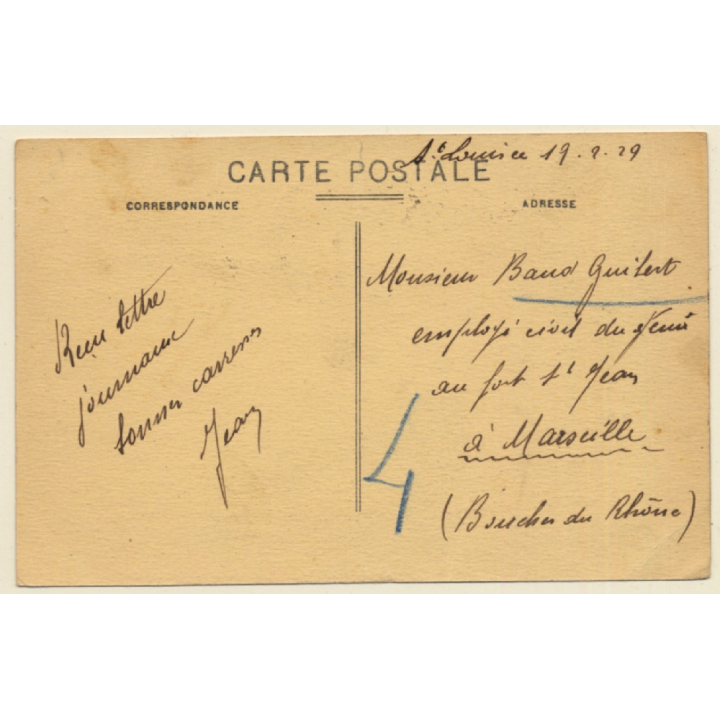 St Louis le 19.2.29
CARTE POSTALE
CORRESPONDANCE
ADRESSE
Reçu lettre
journaux
bonnes caresses
Jean
Monsieur Baud Guibert
employé civil du Génie
au fort St Jean
à Marseille
(Bouches du Rhône)
4